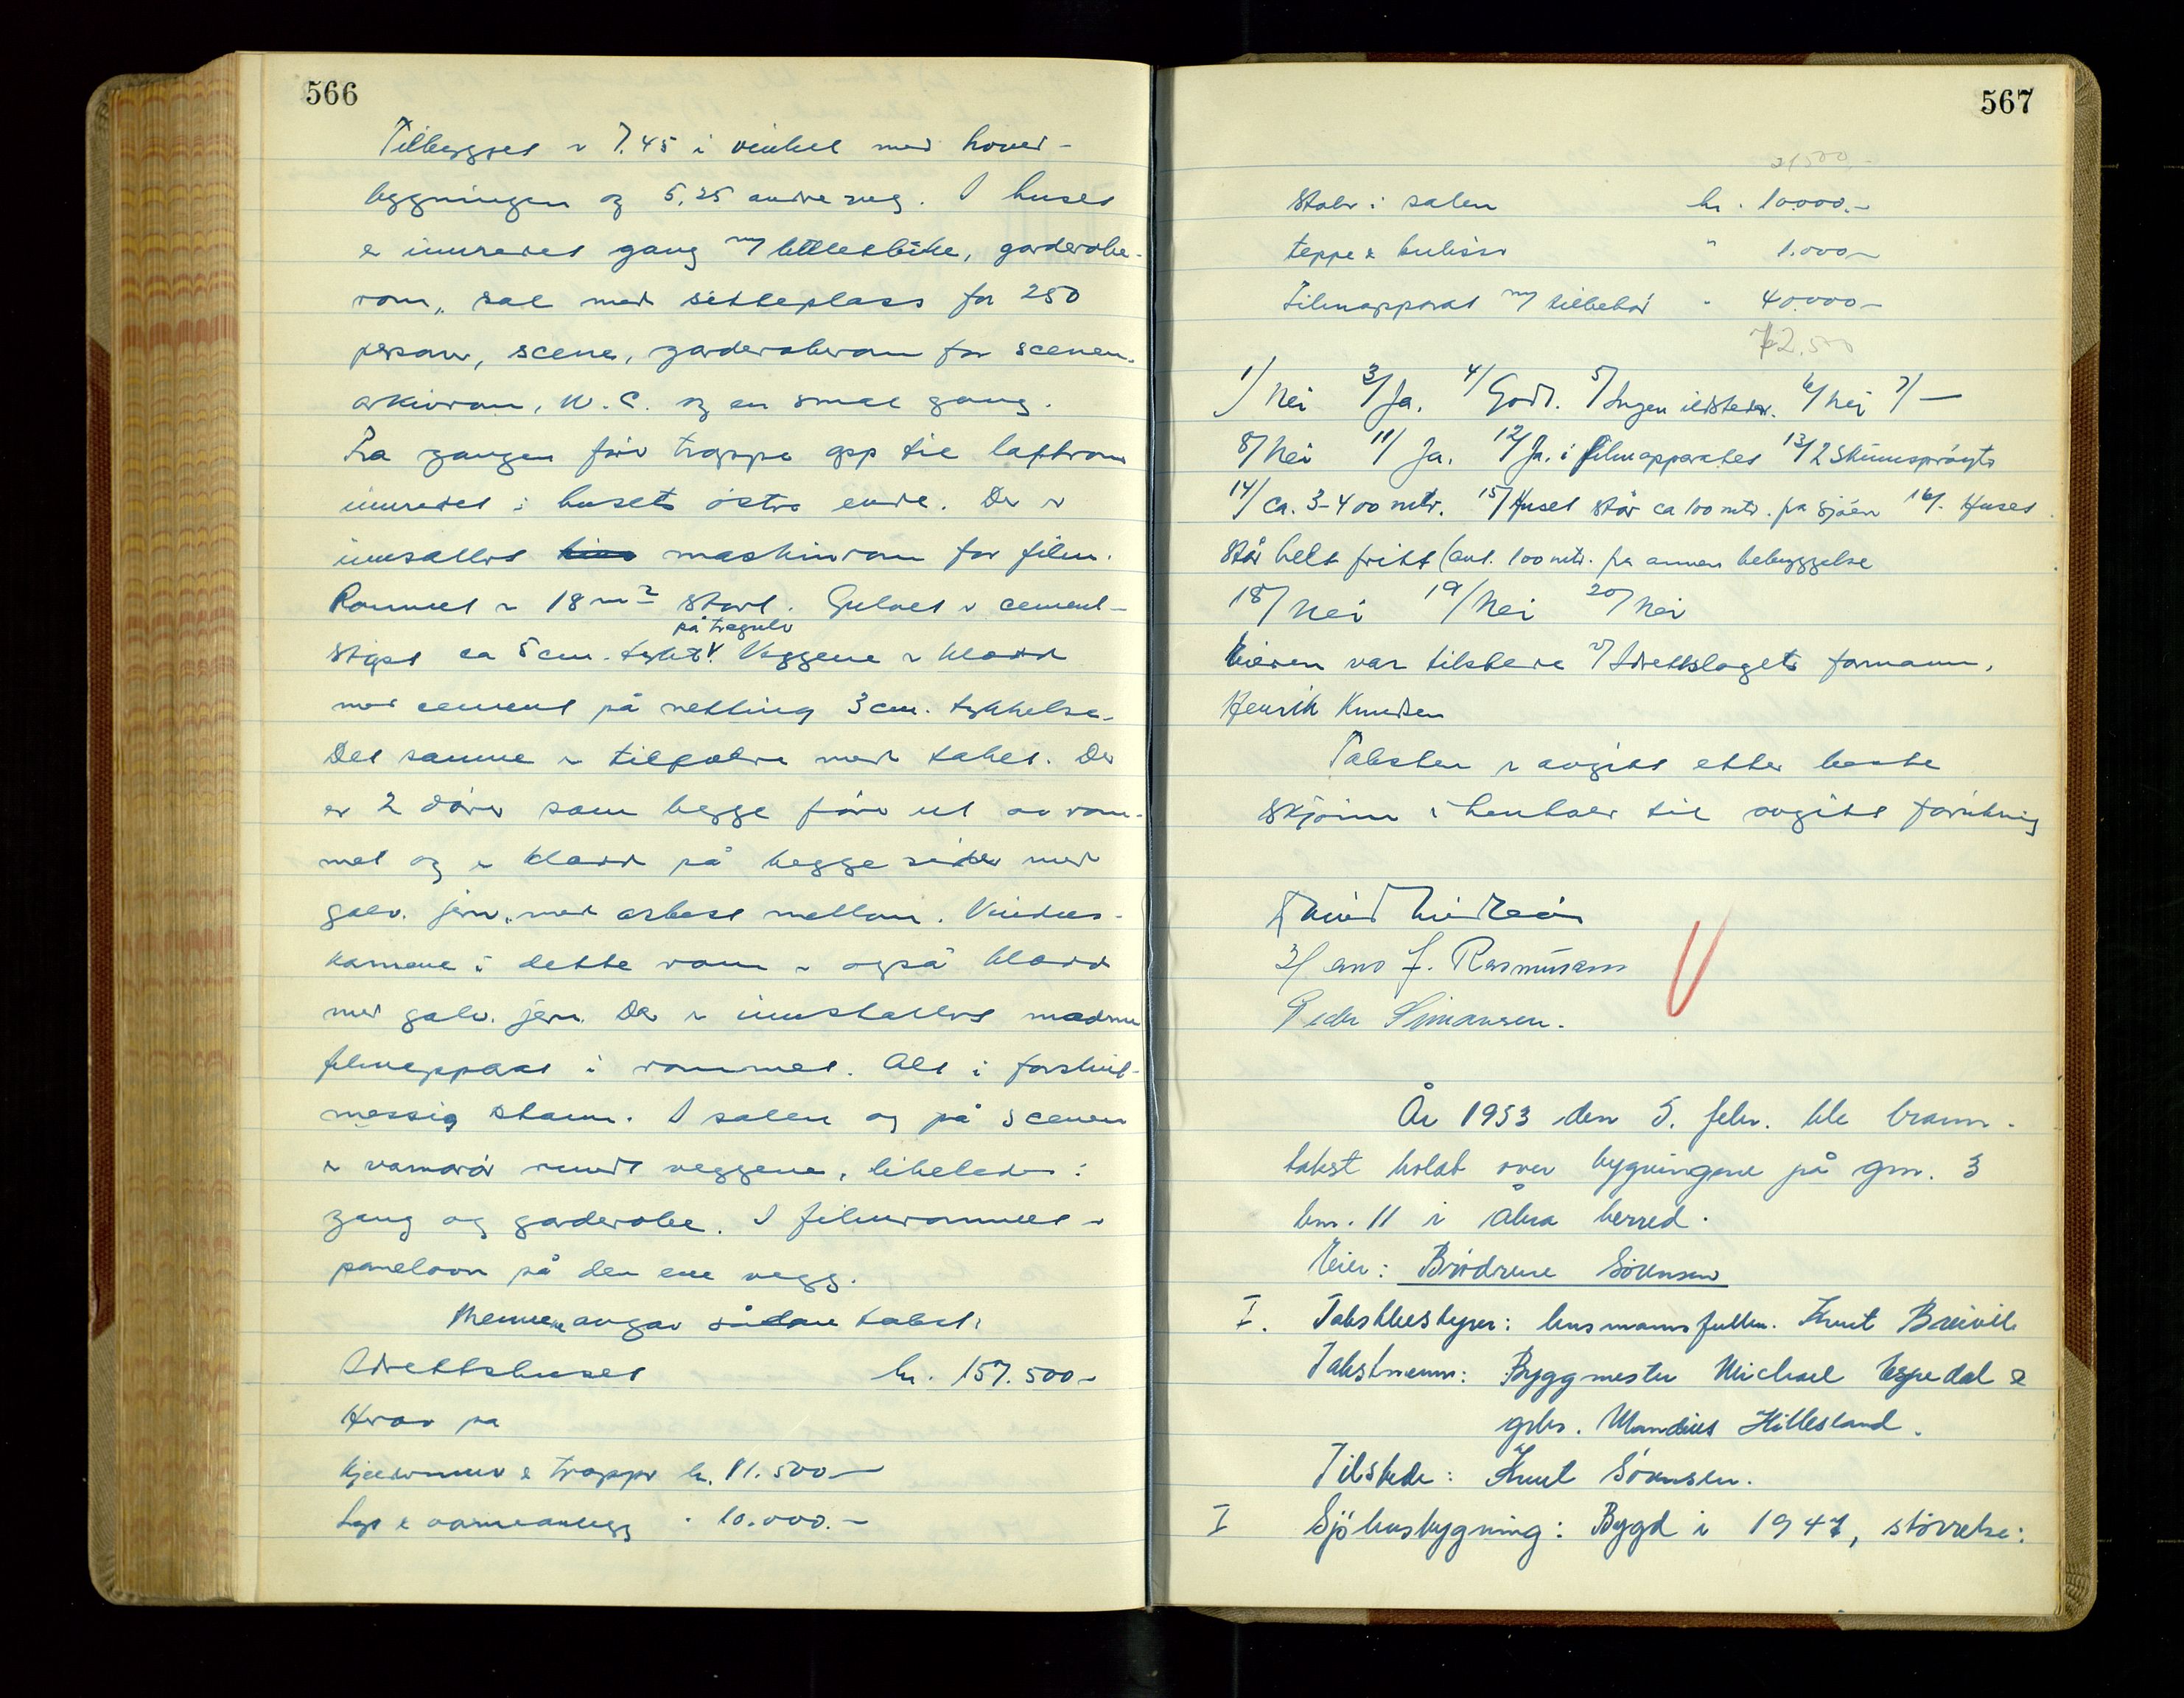 566
Tilbygget er 7.45 i vinkel med hoved-
bygningen og 5,25 andre veg. I huset
er innredet gang m/ billetluke, garderobe-
rom, sal med sitteplass for 250
person, scene, garderoberom for scenen.
arkivrom, W.C. og en smal gang.
Fra gangenför trappe opp til loftrom
innredet i husets östre ende. Der er
innsatt maskinrom for film.
Rommet er 18 m² stort. Gulvet er cement-
stöpt ca 5 cm. tykt på tregulv. Veggene er kledd
med cement på netting 3 cm. tykkelse.
Det samme er tilfelle med taket. Der
er 2 dörer som begge förer ut av rom-
met og er kledd på begge sider med
galv. jern, med asbest mellom. Vindus-
karmene i dette rom er også kledd
med galv. jern. Der er innstallert moderne
filmapparat i rommet. Alt i forskrift-
messig stann. I salen og på scenen
er varmerör rundt veggene, likeledes i
gang og garderobe. I filmrommet er
panelovn på den ene vegg.
Mennene avgav sådan takst:
Idrettshuset kr. 157.500-
Herav på
kjellermur & trapper kr. 11.500-
Lys & varmeanlegg " 10.000.-
567
21500,-
Stoler i salen kr. 10.000.-
teppe & kulisser " 1.000-
Filmapparat m/ tilbehör " 40.000-
72.500
1/ Nei 3/ Ja. 4/ Godt. 5/ Ingen ildsteder. 6/ Nei 7/ —
8/ Nei 11/ Ja. 12/ Ja. i filmapparatet 13/ 2 skumspröyte
14/ ca. 3-400 mtr. 15/ Huset står ca 100 mtr. fra sjöen 16/. Huset
står helt fritt (ant. 100 mtr. fra annen bebyggelse
18/ Nei 19/ Nei 20/ Nei
Eieren var tilstede v/ Idrettslagets formann,
Henrik Knudsen
Taksten er avgitt etter beste
skjönn i henhold til avgitt forsikring
J. Rasmussen
Peder Simonsen.
År 1953 den 5. febr. ble brann-
takst holdt over bygningene på gnr. 3
bnr. 11 i Åkra herred.
Eier: Brödrene Sörensen
I. Takstbestyrer: lensmannsfullm. Knut
Takstmenn: Byggmester Michael Espedal &
gbr. Mandius Hillesland.
Tilstede: Knut Sörensen.
I Sjöhusbygning: Bygd i 1947, störrelse: